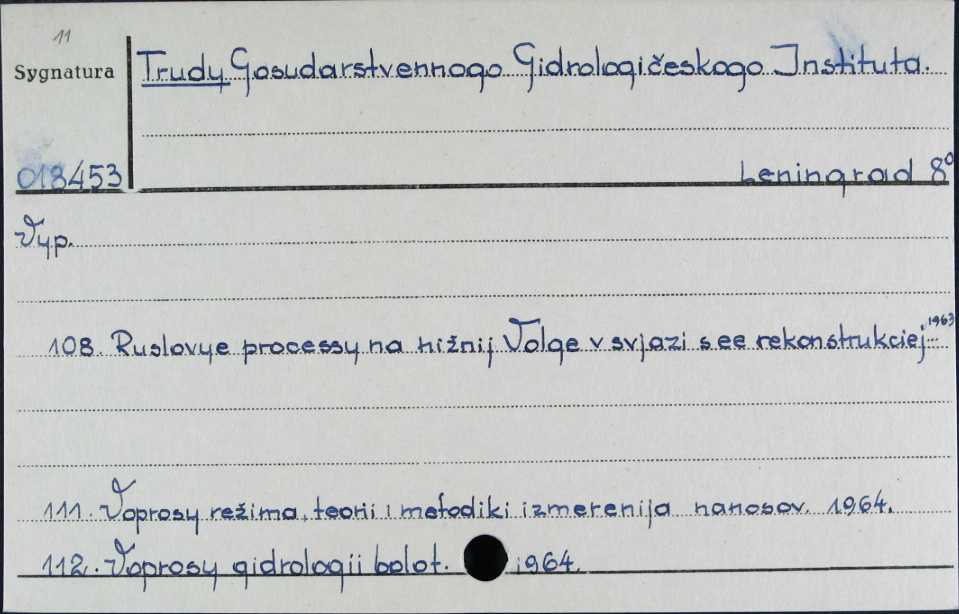 11
Sygnatura
Trudy Gosudarstvennogo Gidrologičeskogo Instituta.
018453
Leningrad 8°
Vyp.
108. Ruslovye processy na nižnij Volge v svjazi s ee rekonstrukciej... 1963
111. Voprosy režima, teorii i metodiki izmerenija nanosov. 1964.
112. Voprosy gidrologii bolot. 1964.